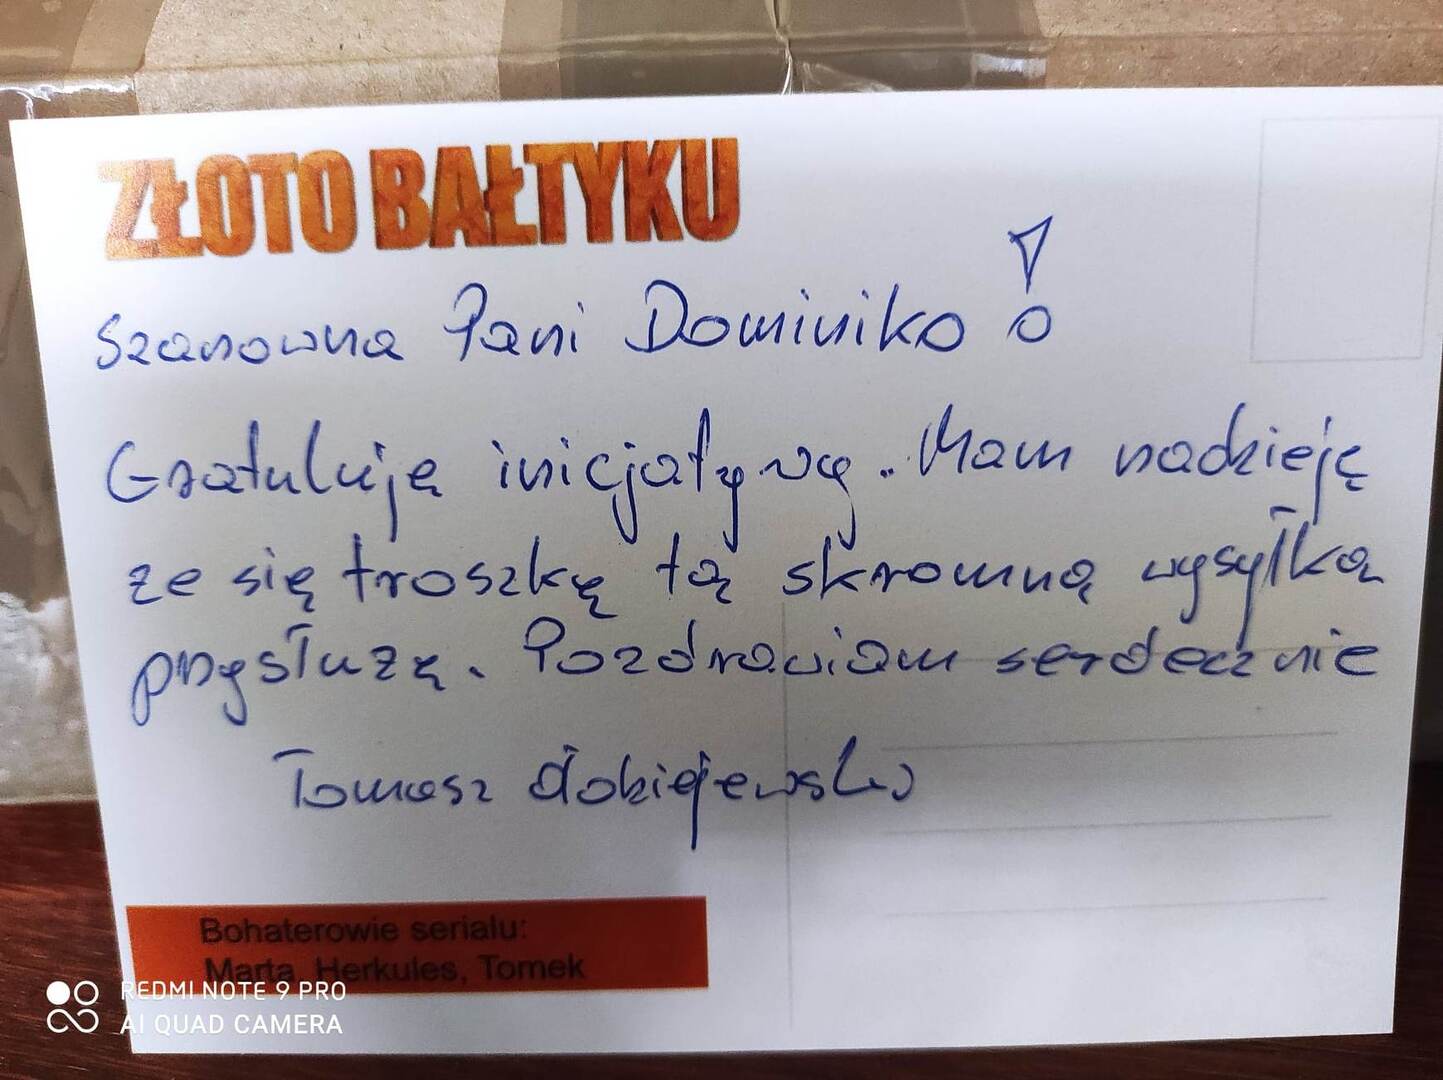 ZŁOTO BAŁTYKU
Szanowna Pani Dominiko !
Gratuluję inicjatywę. Mam nadzieję
że się troszkę tą skromną wysyłką
przysłużę. Pozdrawiam serdecznie
Tomasz
Bohaterowie serialu:
Marta, Herkules, Tomek
REDMI NOTE 9 PRO
AI QUAD CAMERA